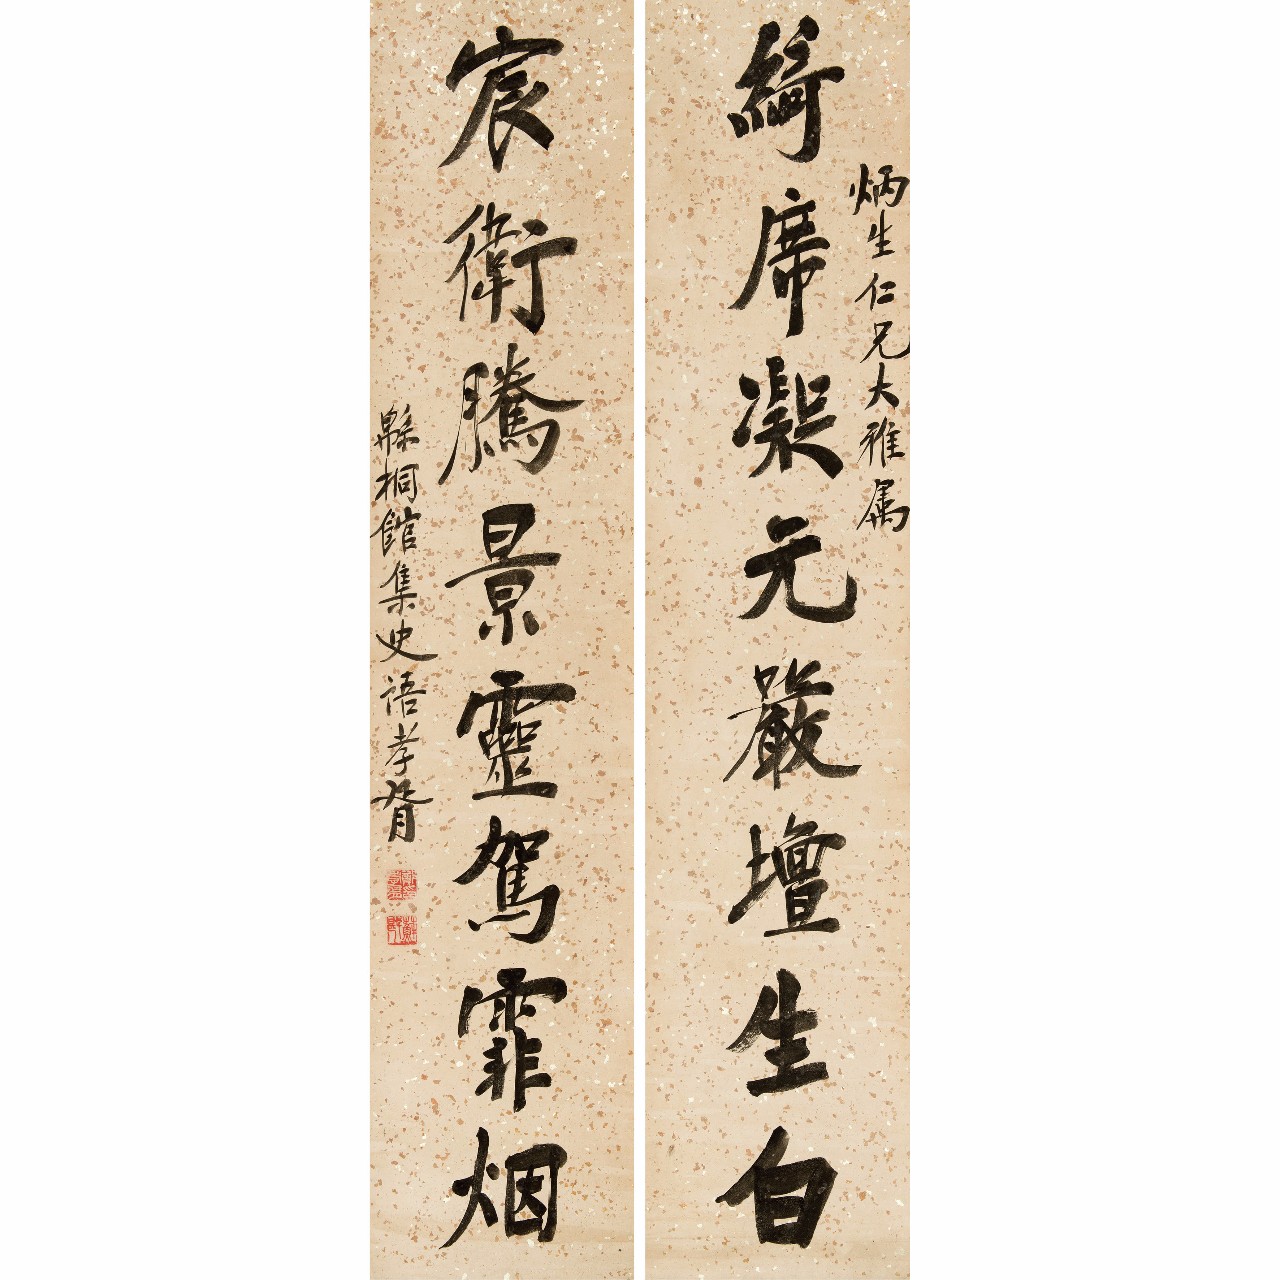 炳生仁兄大雅属
綺席凝元嚴壇生白
宸衛騰景靈駕霏烟
緜桐館集史語孝胥